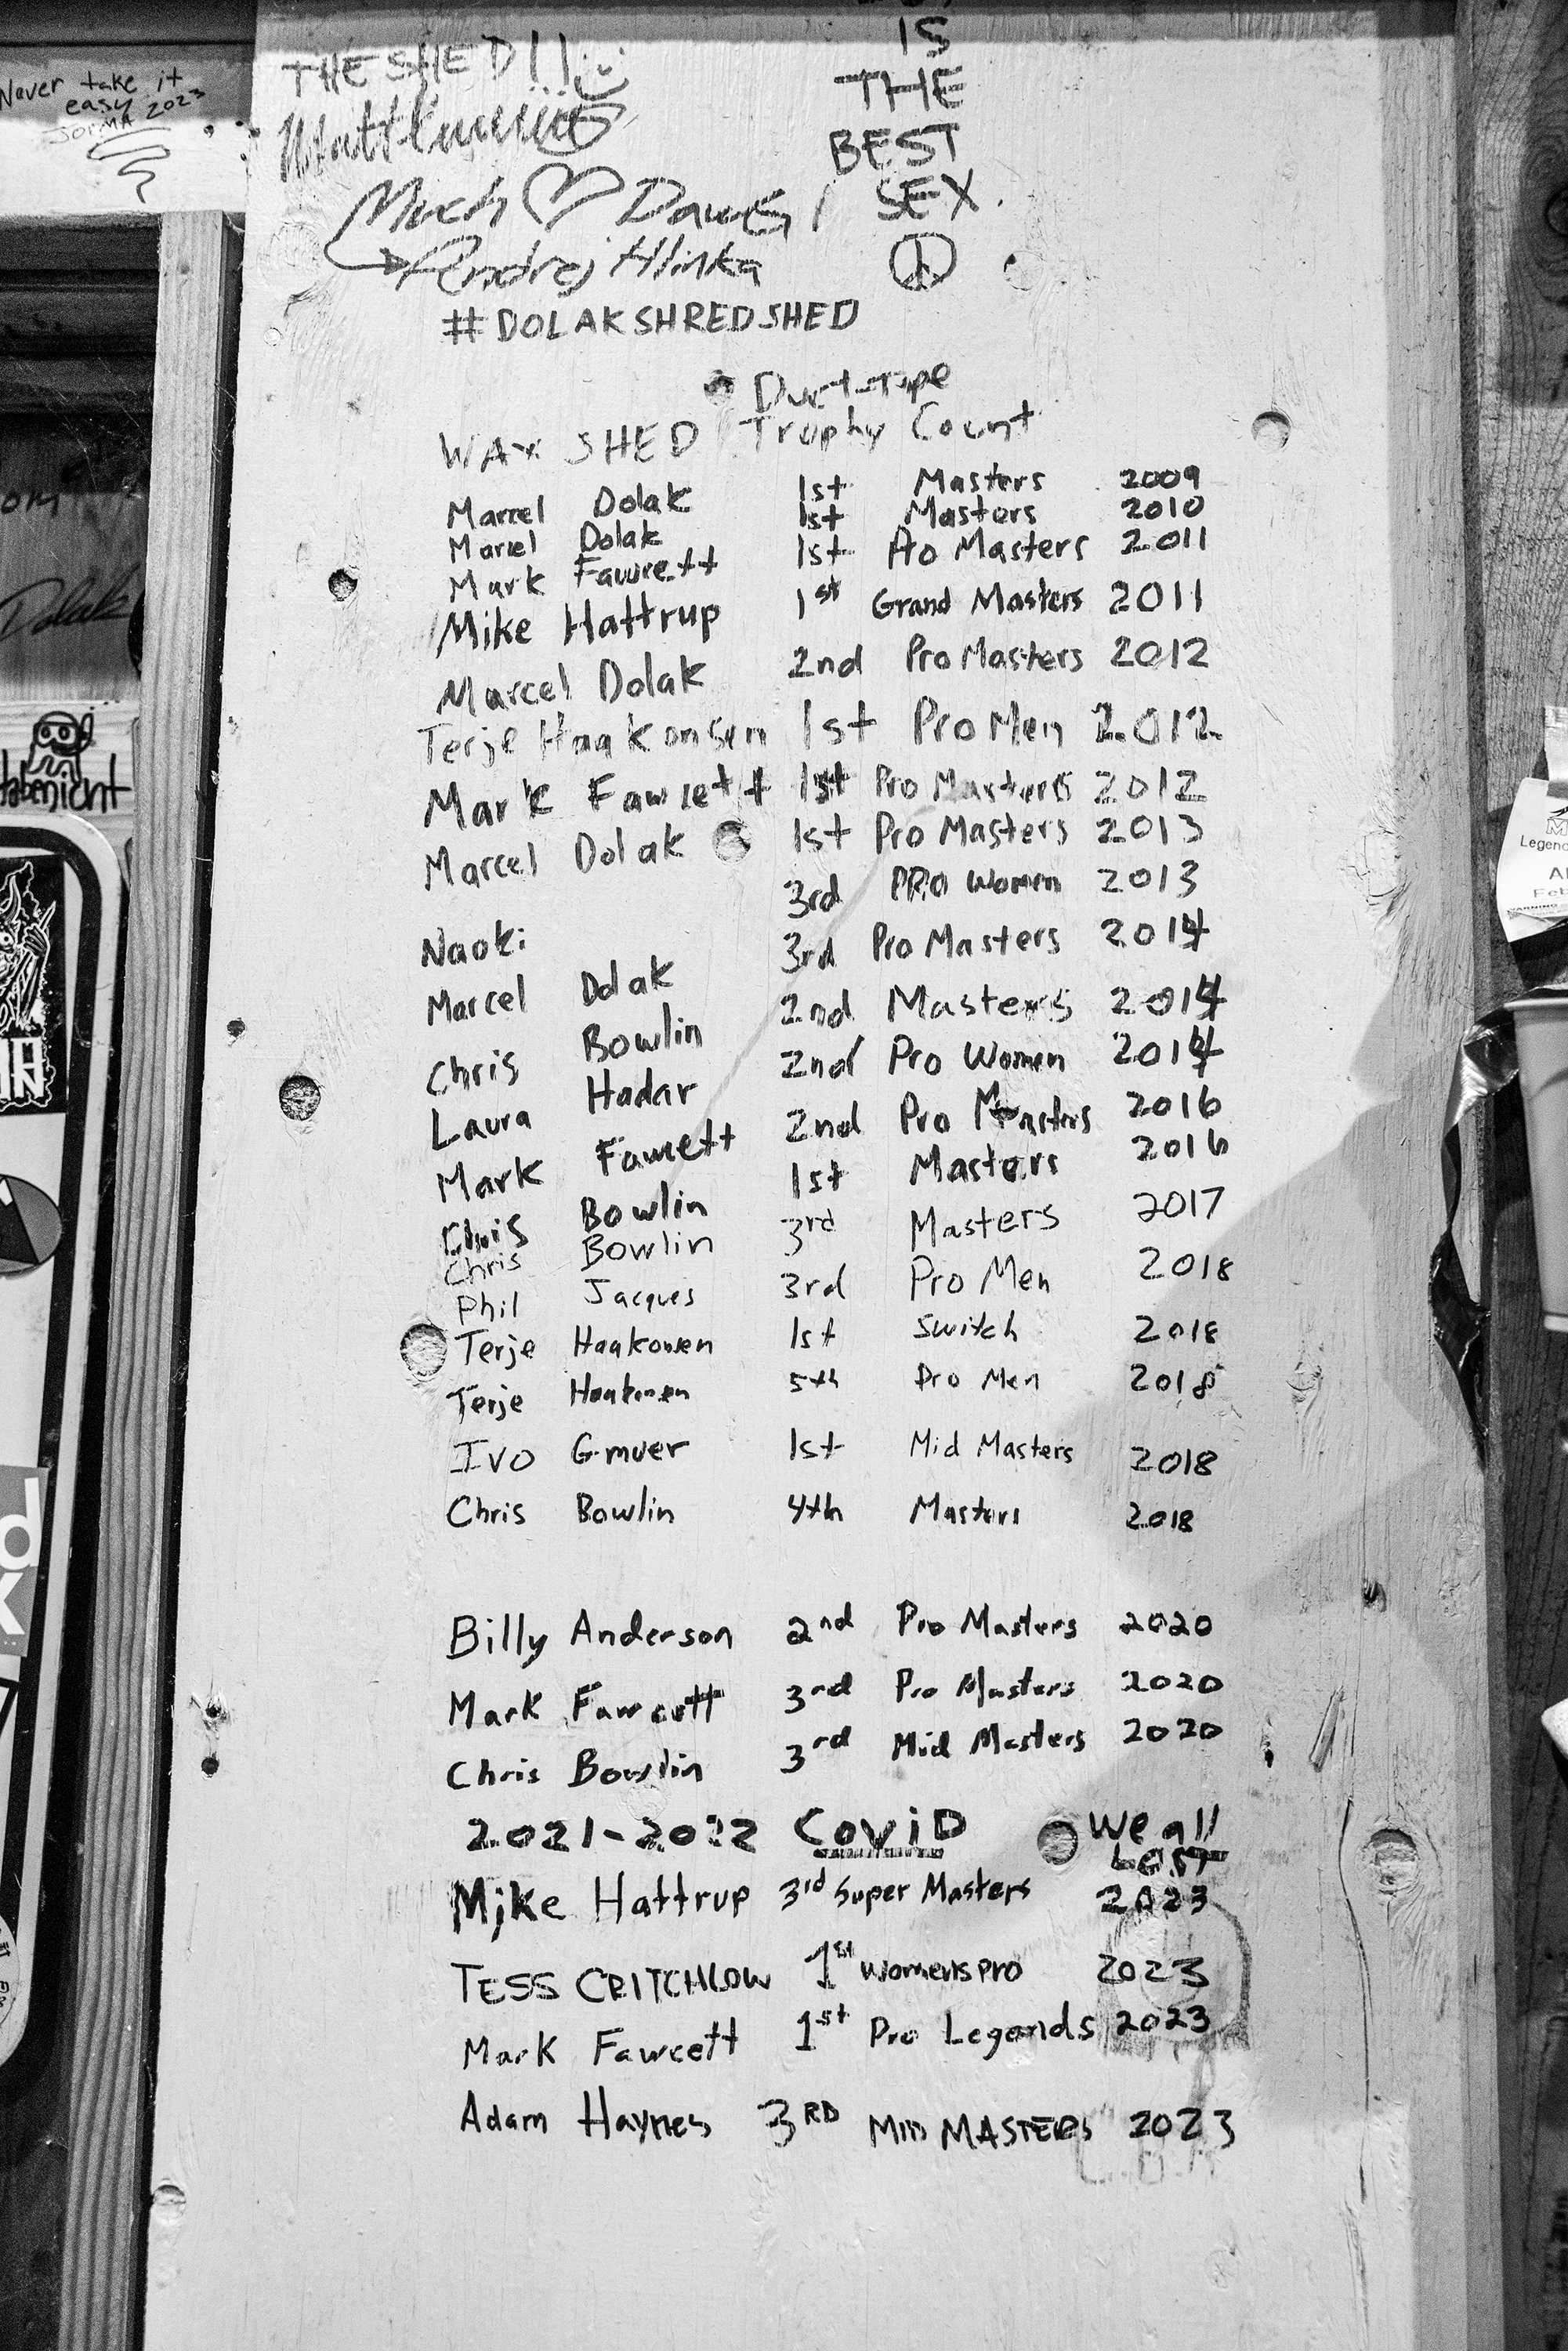 Never take it
easy 2023
JORMA
THE SHED!!
IS
THE
BEST
SEX.
Much ♡ Dawg
Andrej Hlinka
#DOLAKSHREDSHED
Duct-Tape
WAX SHED Trophy Count
Marcel Dolak 1st Masters 2009
Marcel Dolak 1st Masters 2010
Mark Fawcett 1st Pro Masters 2011
Mike Hattrup 1st Grand Masters 2011
Marcel Dolak 2nd Pro Masters 2012
Terje Haakonsen 1st Pro Men 2012
Mark Fawcett 1st Pro Masters 2012
Marcel Dolak 1st Pro Masters 2013
Naoki 3rd PRO Women 2013
Marcel Dolak 3rd Pro Masters 2014
Chris Bowlin 2nd Masters 2014
Laura Hadar 2nd Pro Women 2014
Mark Fawcett 2nd Pro Masters 2016
Chris Bowlin 1st Masters 2016
Chris Bowlin 3rd Masters 2017
Phil Jacques 3rd Pro Men 2018
Terje Haakonsen 1st Switch 2018
Terje Haakonsen 5th Pro Men 2018
Ivo Gmuer 1st Mid Masters 2018
Chris Bowlin 4th Masters 2018
Billy Anderson 2nd Pro Masters 2020
Mark Fawcett 3rd Pro Masters 2020
Chris Bowlin 3rd Mid Masters 2020
2021-2022 CoviD We all
Lost
Mike Hattrup 3rd Super Masters 2023
TESS CRITCHLOW 1st womens pro 2023
Mark Fawcett 1st Pro Legends 2023
Adam Haynes 3RD MID MASTERS 2023
Dolak
habenicht
Legend